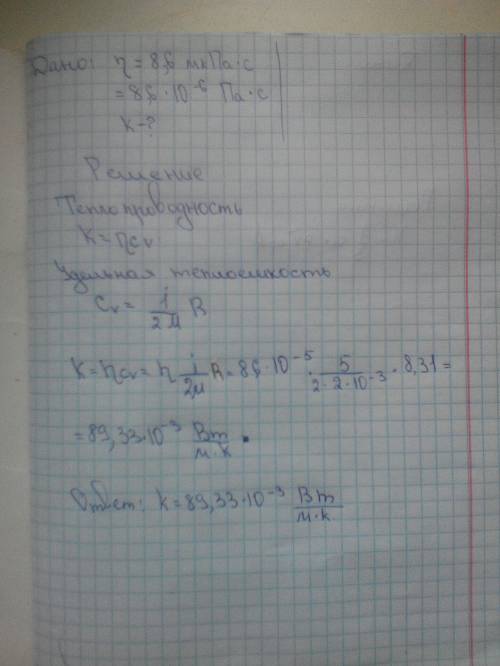 Дано: η = 8,6 мкПа·с
= 8,6·10⁻⁶ Па·с
K-?
Решение
Теплопроводность
K = ηcᵥ
Удельная теплоемкость
Cᵥ = i/2μ R
K = ηcᵥ = η i/2μ R = 8,6·10⁻⁵ · 5/2·2·10⁻³ · 8,31 =
= 89,33·10⁻³ Вт/м·к.
Ответ: K = 89,33·10⁻³ Вт/м·к.